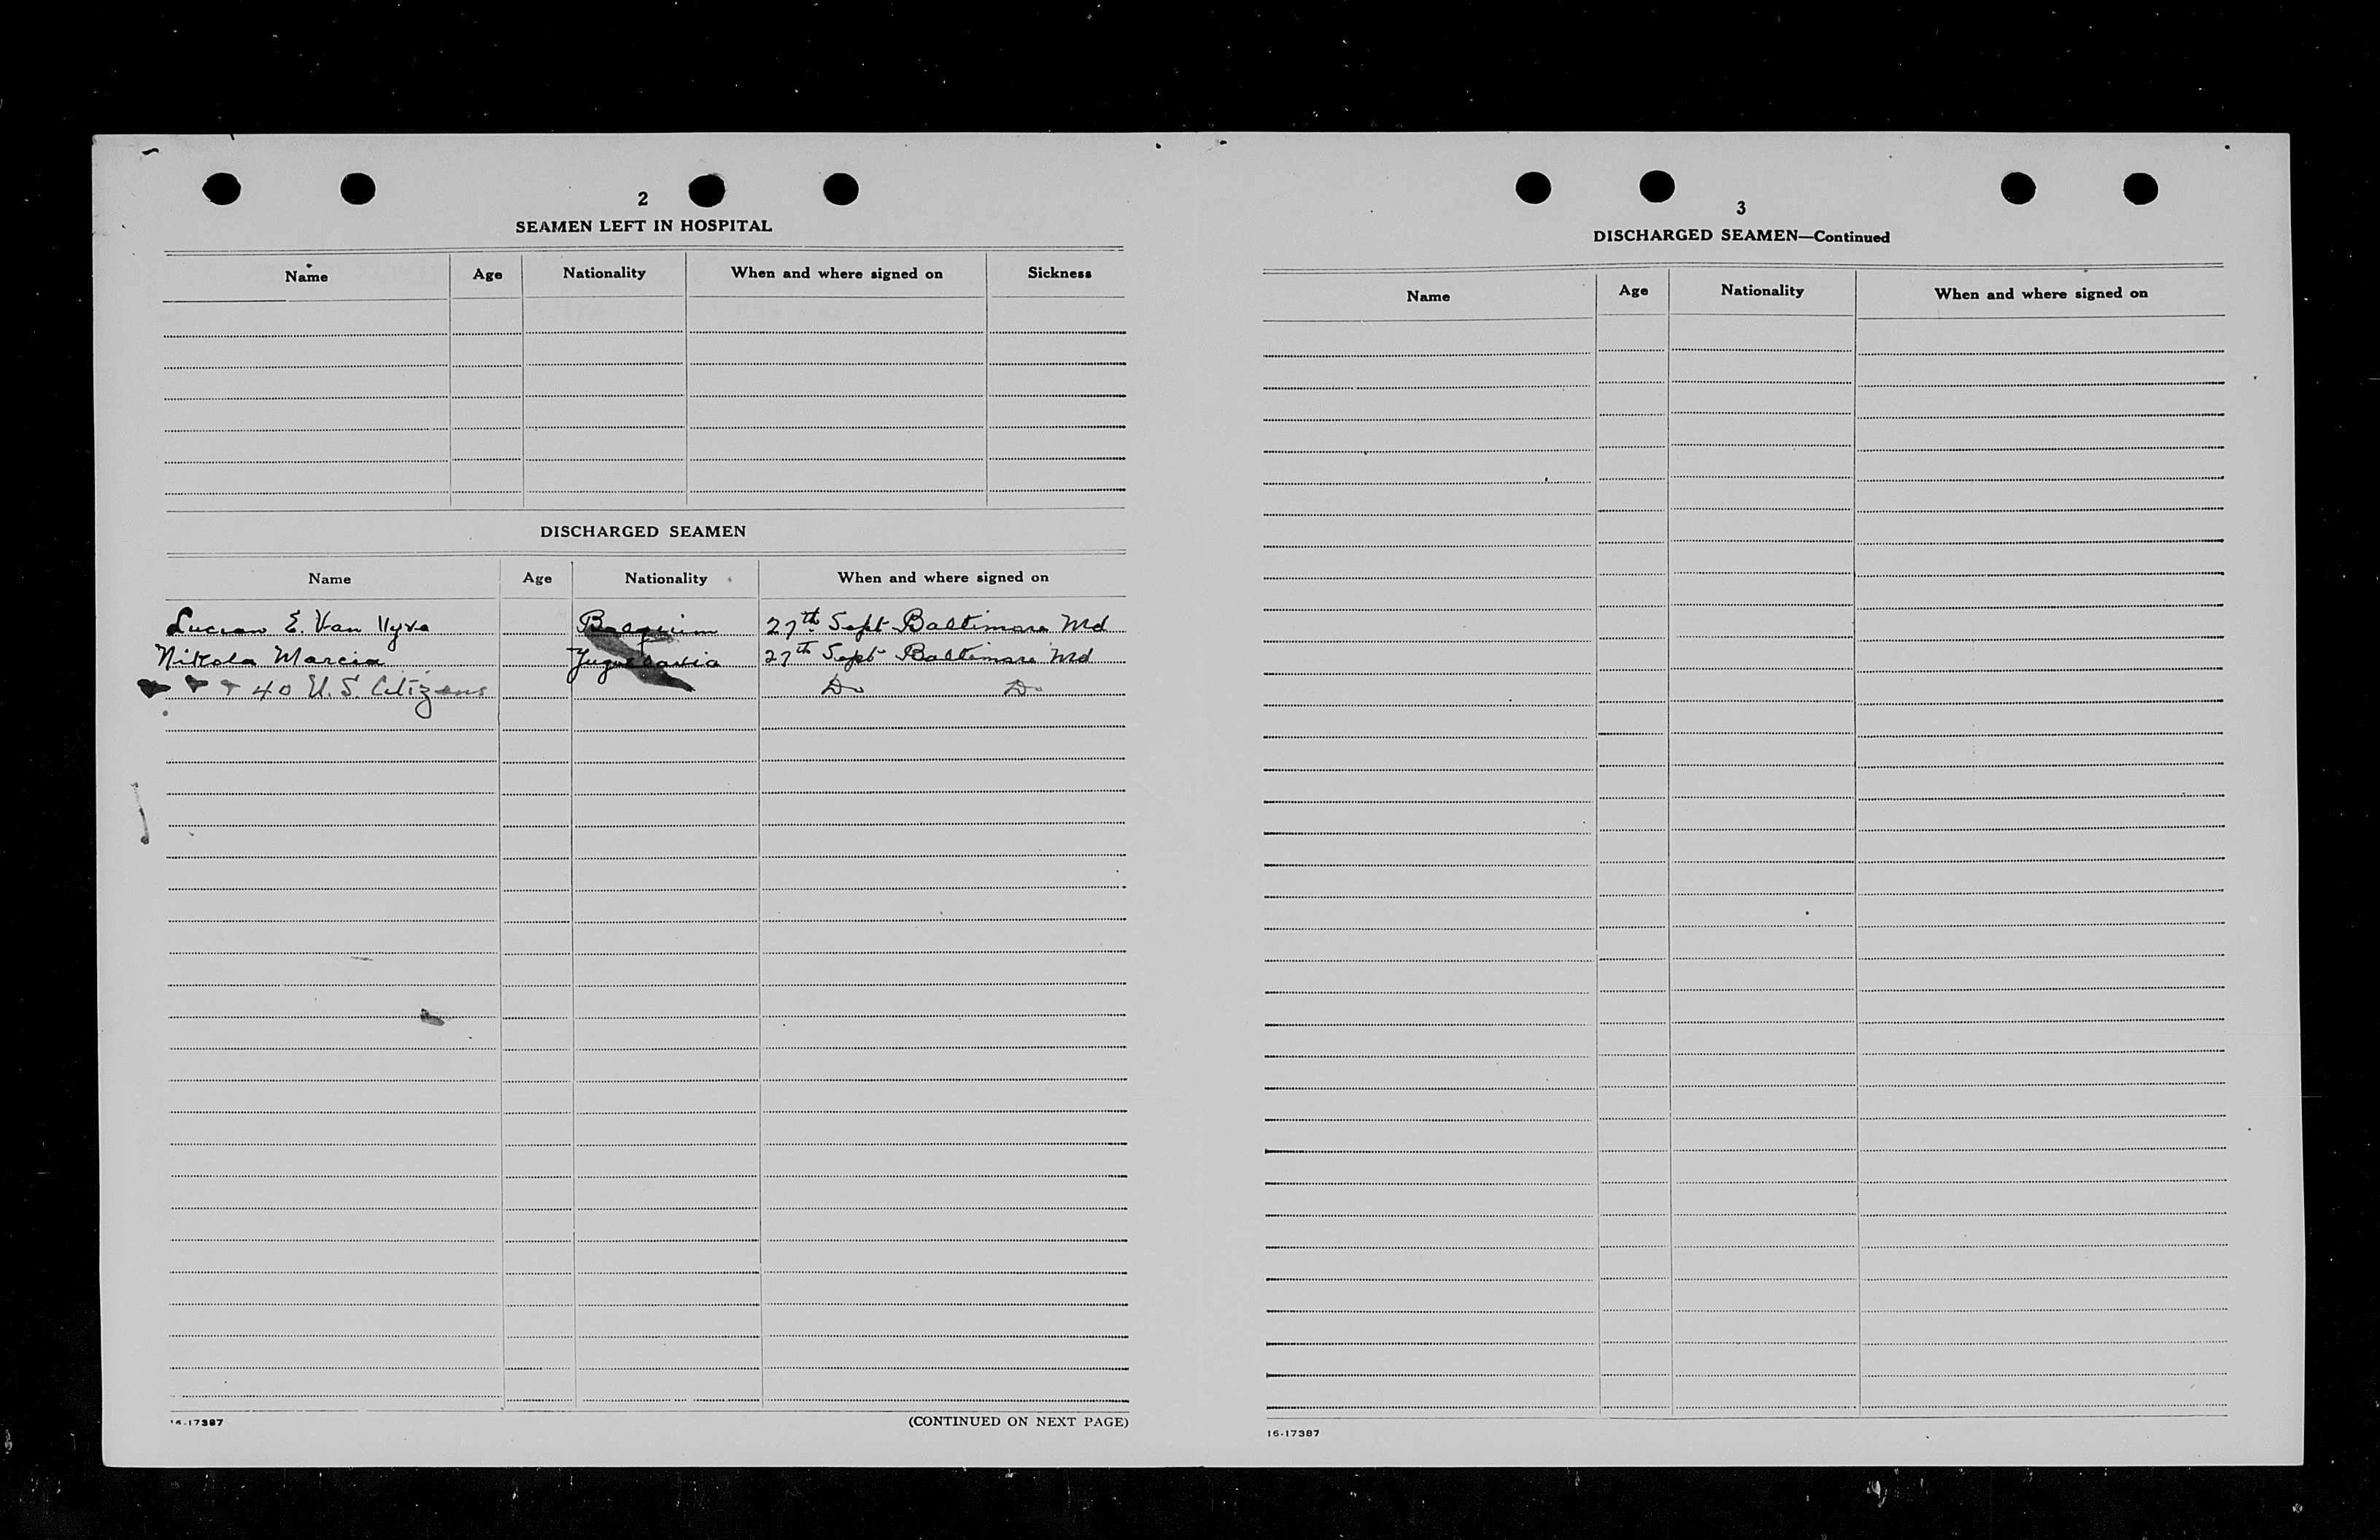 2
SEAMEN LEFT IN HOSPITAL
Name Age Nationality When and where signed on Sickness
DISCHARGED SEAMEN
Name Age Nationality When and where signed on
Lucien E. Van Uyve Belguim 27th Sept Baltimore Md
Nikola Marcia Yugoslavia 27th Sept Baltimore Md
40 U.S. Citizens Do Do
16-17387
(CONTINUED ON NEXT PAGE)
3
DISCHARGED SEAMEN—Continued
Name Age Nationality When and where signed on
16-17387